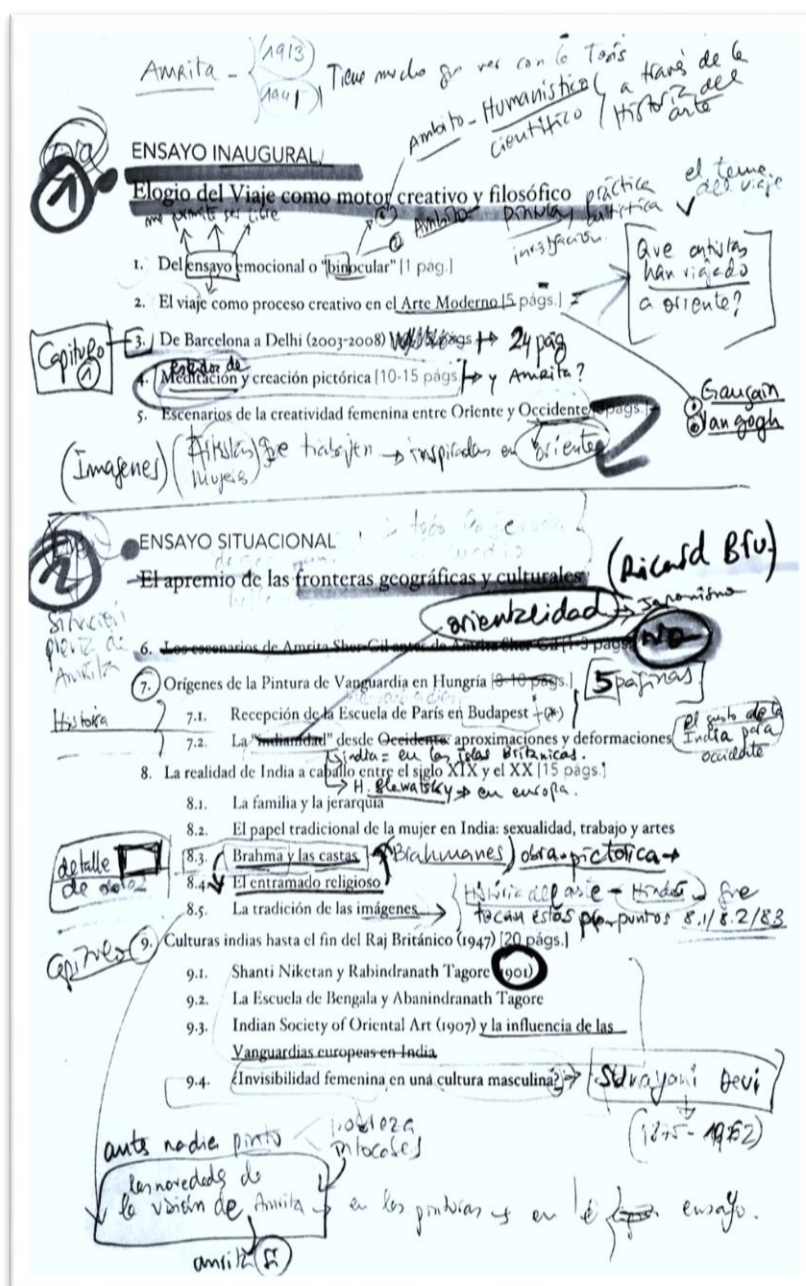 Amrita - (1913)
(1941) Tiene mucho que ver con la Tesis
Ambito - Humanistico / a través de la
científico / Historia del
arte
1 ENSAYO INAUGURAL
Elogio del Viaje como motor creativo y filosófico
el tema del viaje
me permite ser libre
Ambito práctica
pintura artística
investigación
1. Del ensayo emocional o "binocular" [1 pág.]
Que artistas
han viajado
a oriente?
2. El viaje como proceso creativo en el Arte Moderno [5 págs.]
Capitulo 1
3. De Barcelona a Delhi (2003-2008) págs. 24 pág
4. Meditación y creación pictórica [10-15 págs.] → y Amrita?
Gaugain
Van gogh
5. Escenarios de la creatividad femenina entre Oriente y Occidente págs.
(Imagenes) (Artistas mujeres) que trabajen → inspiradas en oriente
2 ENSAYO SITUACIONAL
El apremio de las fronteras geográficas y culturales
(Ricard Bru)
orientalidad → Japonismo
6. Los escenarios de Amrita Sher-Gil antes de Amrita Sher-Gil [1-3 págs.] NO
Situación
previa de
Amrita
7. Orígenes de la Pintura de Vanguardia en Hungría [8-10 págs.] 5 páginas
Historia
7.1. Recepción de la Escuela de París en Budapest (*)
7.2. La "indianidad" desde Occidente: aproximaciones y deformaciones
El gusto de la
India para
occidente
india = en las Islas Britanicas.
8. La realidad de India a caballo entre el siglo XIX y el XX [15 págs.]
→ H. Blewatsky → en europa.
8.1. La familia y la jerarquía
8.2. El papel tradicional de la mujer en India: sexualidad, trabajo y artes
detalle
de obra
8.3. Brahma y las castas (Brahmanes) obra pictorica →
8.4. El entramado religioso
8.5. La tradición de las imágenes → Historia del arte - Hindú que
tocan estos puntos 8.1/8.2/83
Capitulo
9. Culturas indias hasta el fin del Raj Británico (1947) [20 págs.]
9.1. Shanti Niketan y Rabindranath Tagore (1901)
9.2. La Escuela de Bengala y Abanindranath Tagore
9.3. Indian Society of Oriental Art (1907) y la influencia de las
Vanguardias europeas en India
9.4. ¿Invisibilidad femenina en una cultura masculina? → Sunayani Devi
(1875-1962)
antes nadie pinto pobreza
las novedades de
la visión de Amrita → en las pinturas y en ensayo.